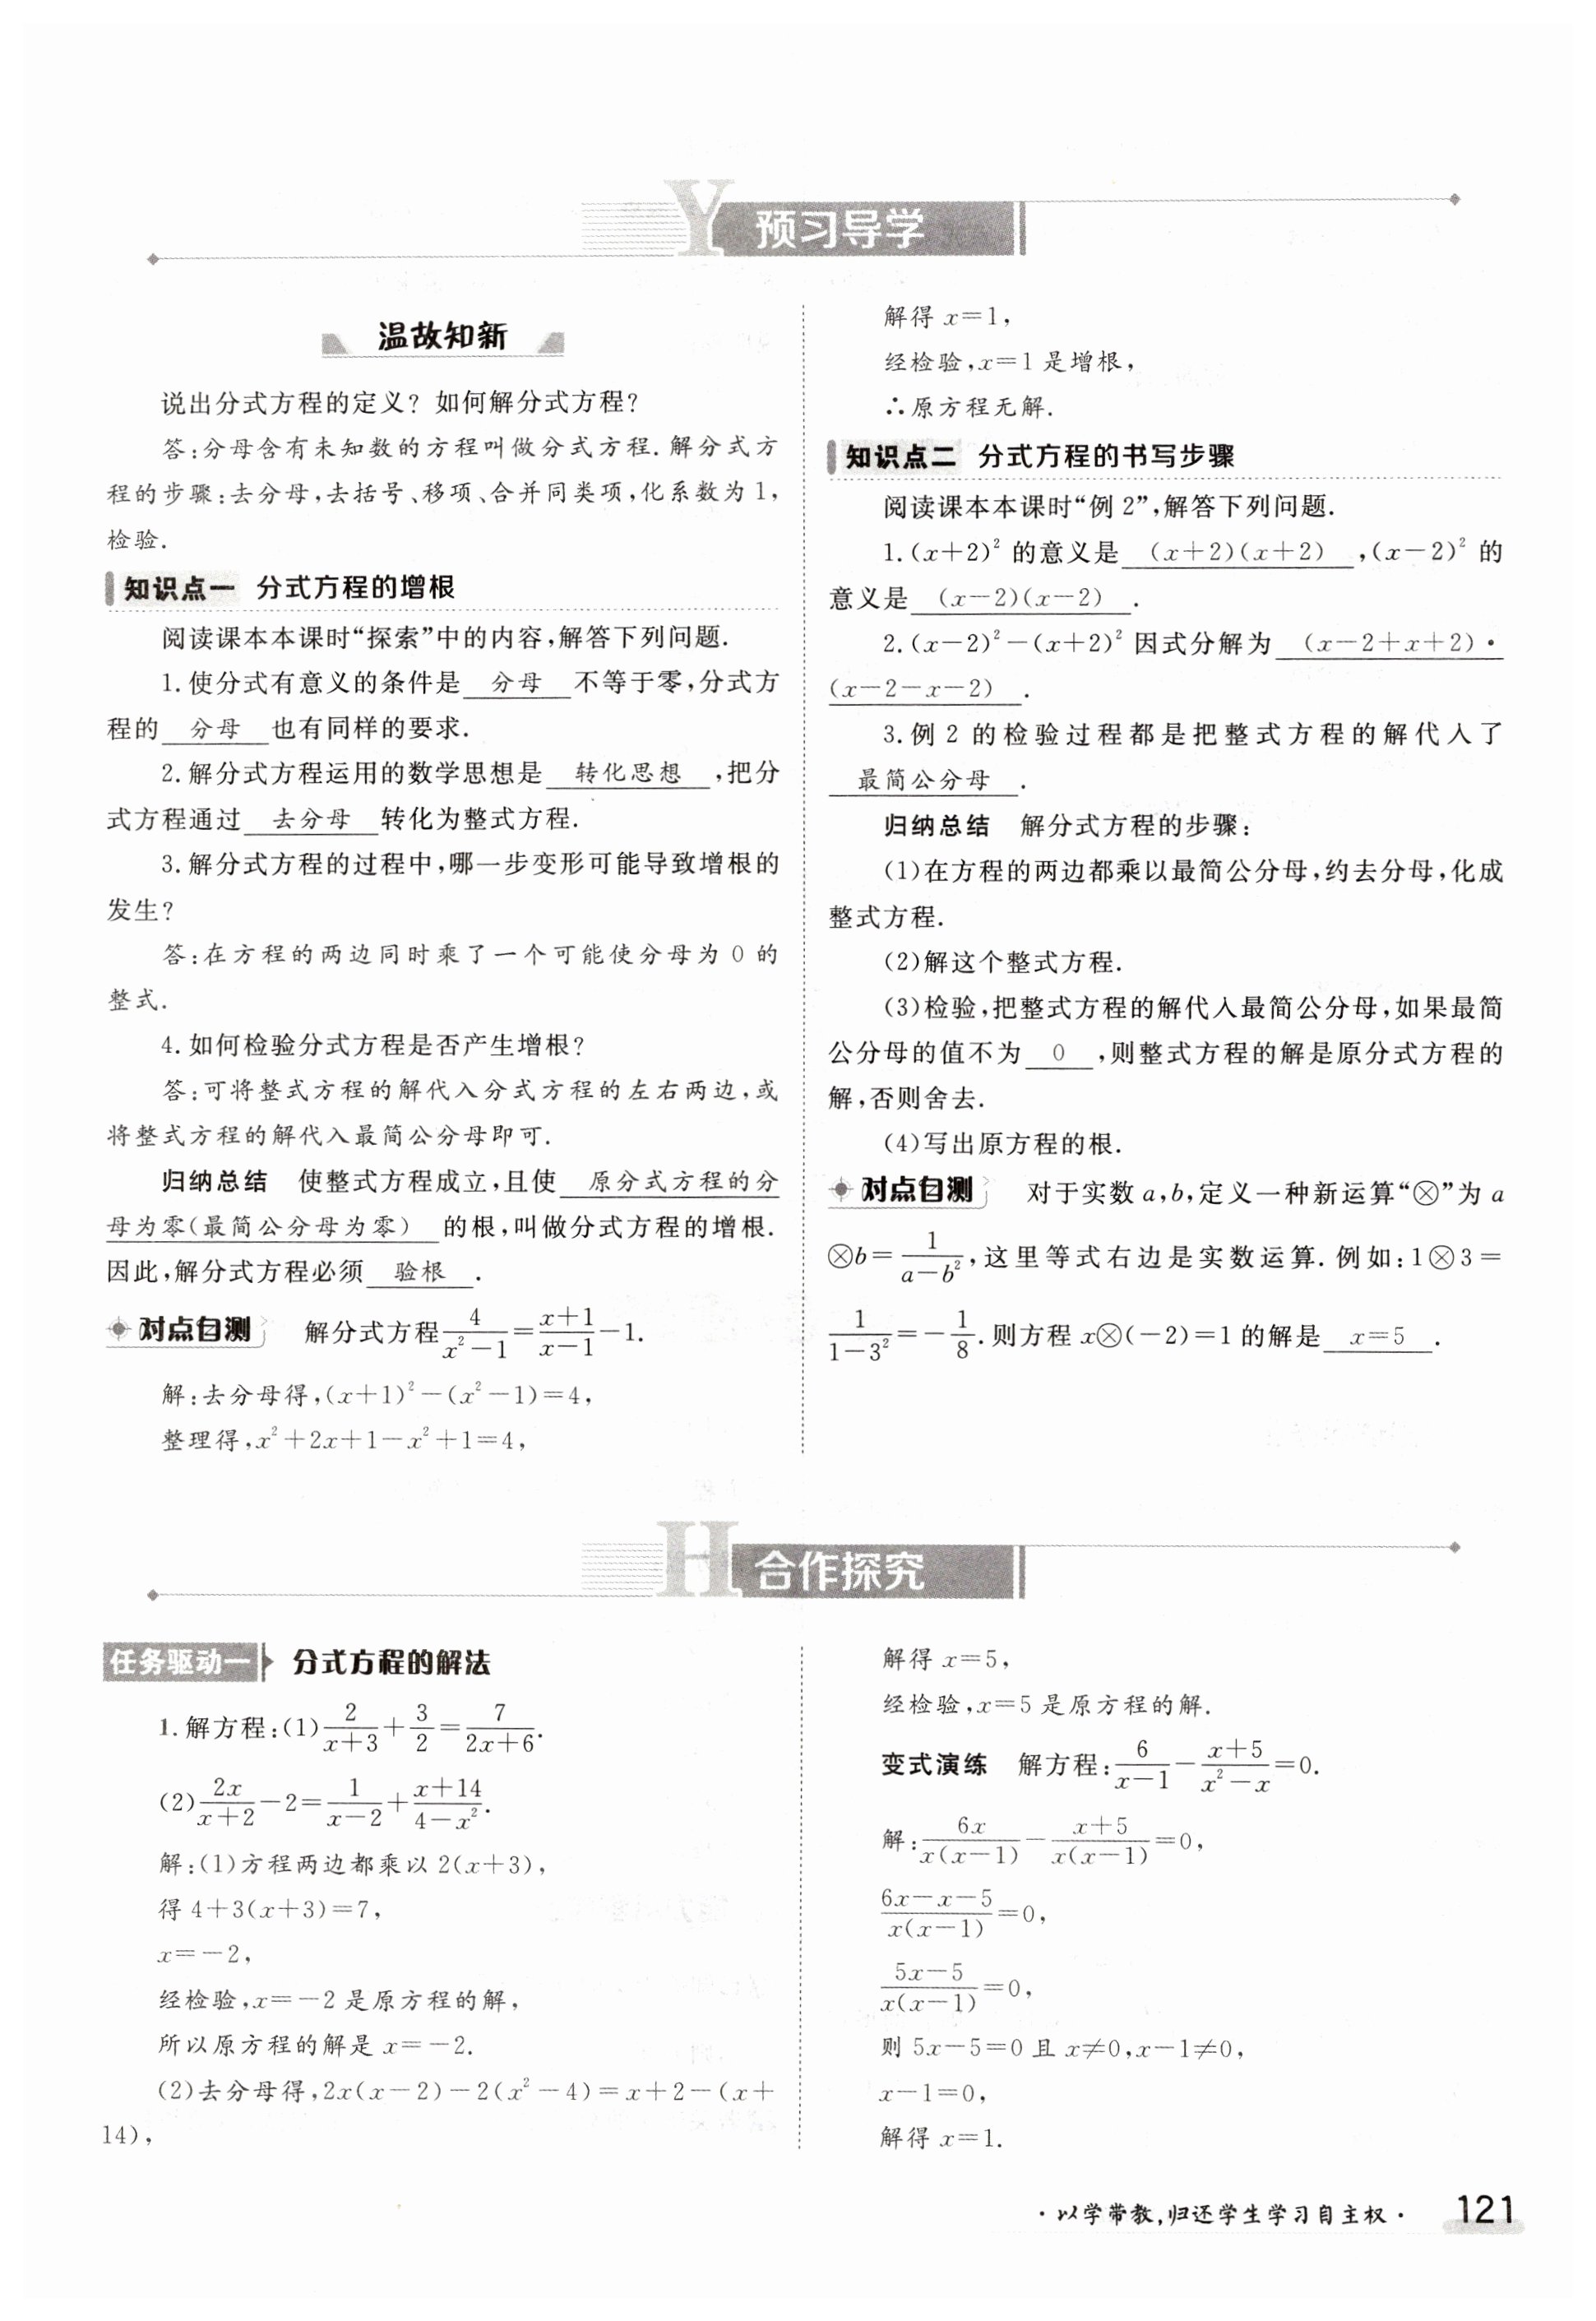 Y 预习导学
温故知新
说出分式方程的定义？如何解分式方程？
答:分母含有未知数的方程叫做分式方程.解分式方
程的步骤:去分母,去括号、移项、合并同类项,化系数为1,
检验.
知识点一 分式方程的增根
阅读课本本课时“探索”中的内容,解答下列问题.
1.使分式有意义的条件是 分母 不等于零,分式方
程的 分母 也有同样的要求.
2.解分式方程运用的数学思想是 转化思想 ,把分
式方程通过 去分母 转化为整式方程.
3.解分式方程的过程中,哪一步变形可能导致增根的
发生?
答:在方程的两边同时乘了一个可能使分母为0的
整式.
4.如何检验分式方程是否产生增根?
答:可将整式方程的解代入分式方程的左右两边,或
将整式方程的解代入最简公分母即可.
归纳总结 使整式方程成立,且使 原分式方程的分
母为零(最简公分母为零) 的根,叫做分式方程的增根.
因此,解分式方程必须 验根 .
对点自测 解分式方程4/(x²-1)=(x+1)/(x-1)-1.
解:去分母得,(x+1)²-(x²-1)=4,
整理得,x²+2x+1-x²+1=4,
解得x=1,
经检验,x=1是增根,
∴原方程无解.
知识点二 分式方程的书写步骤
阅读课本本课时“例2”,解答下列问题.
1.(x+2)²的意义是 (x+2)(x+2) ,(x-2)²的
意义是 (x-2)(x-2) .
2.(x-2)²-(x+2)²因式分解为 (x-2+x+2)·
(x-2-x-2) .
3.例2的检验过程都是把整式方程的解代入了
最简公分母 .
归纳总结 解分式方程的步骤:
(1)在方程的两边都乘以最简公分母,约去分母,化成
整式方程.
(2)解这个整式方程.
(3)检验,把整式方程的解代入最简公分母,如果最简
公分母的值不为 0 ,则整式方程的解是原分式方程的
解,否则舍去.
(4)写出原方程的根.
对点自测 对于实数a,b,定义一种新运算“⊗”为a
⊗b=1/(a-b²),这里等式右边是实数运算.例如:1⊗3=
1/(1-3²)=-1/8.则方程x⊗(-2)=1的解是 x=5 .
H 合作探究
任务驱动一 分式方程的解法
1.解方程:(1)2/(x+3)+3/2=7/(2x+6).
(2)2x/(x+2)-2=1/(x-2)+(x+14)/(4-x²).
解:(1)方程两边都乘以2(x+3),
得4+3(x+3)=7,
x=-2,
经检验,x=-2是原方程的解,
所以原方程的解是x=-2.
(2)去分母得,2x(x-2)-2(x²-4)=x+2-(x+
14),
解得x=5,
经检验,x=5是原方程的解.
变式演练 解方程:6/(x-1)-(x+5)/(x²-x)=0.
解:6x/(x(x-1))-(x+5)/(x(x-1))=0,
(6x-x-5)/(x(x-1))=0,
(5x-5)/(x(x-1))=0,
则5x-5=0且x≠0,x-1≠0,
x-1=0,
解得x=1.
·以学带教,归还学生学习自主权· 121